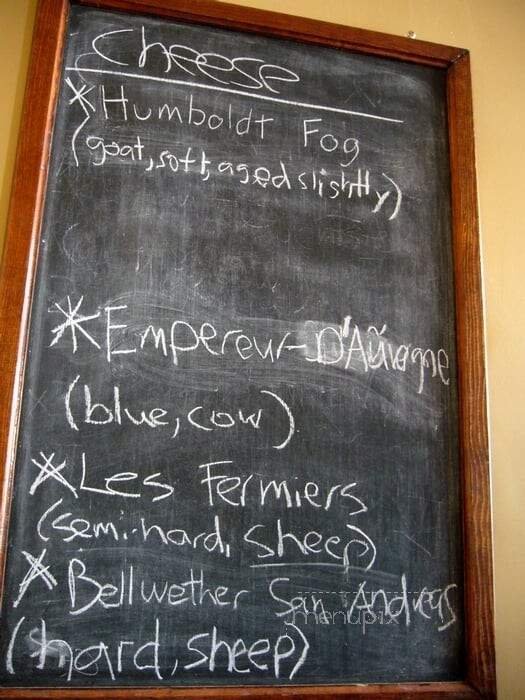 Cheese
*Humboldt Fog
(goat, soft, aged slightly)
*Empereur-D'Auvagne
(blue, cow)
*Les Fermiers
(semi-hard, sheep)
*Bellwether San Andreas
menupix
(hard, sheep)